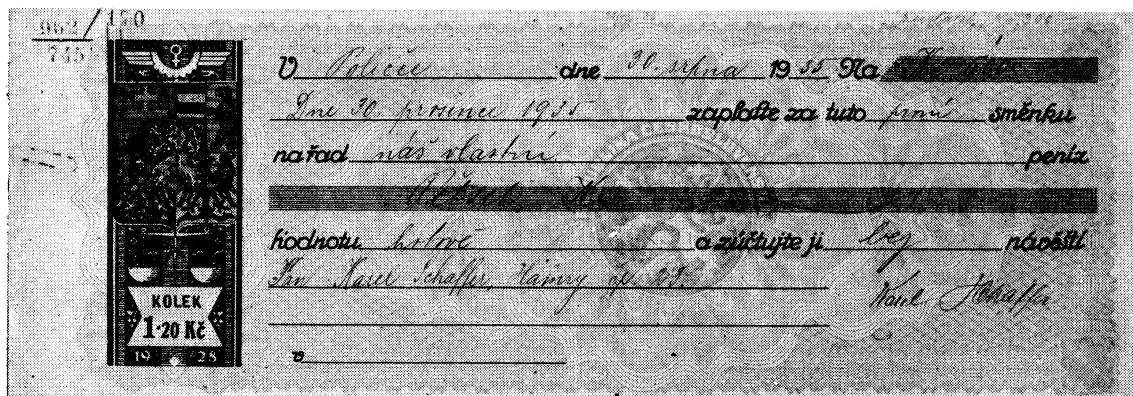 962/170
745
V Poličce dne 30. srpna 1935 Na Kč 500
Dne 30. prosince 1935 zaplaťte za tuto první směnku
na řad náš vlastní peníz
Pětset Kč
hodnotu hotově a zúčtujte ji bez návěští
Pan Karel Schaffer, Hamry čp.
Karel Schaffer
v
KOLEK
1·20 Kč
19 28